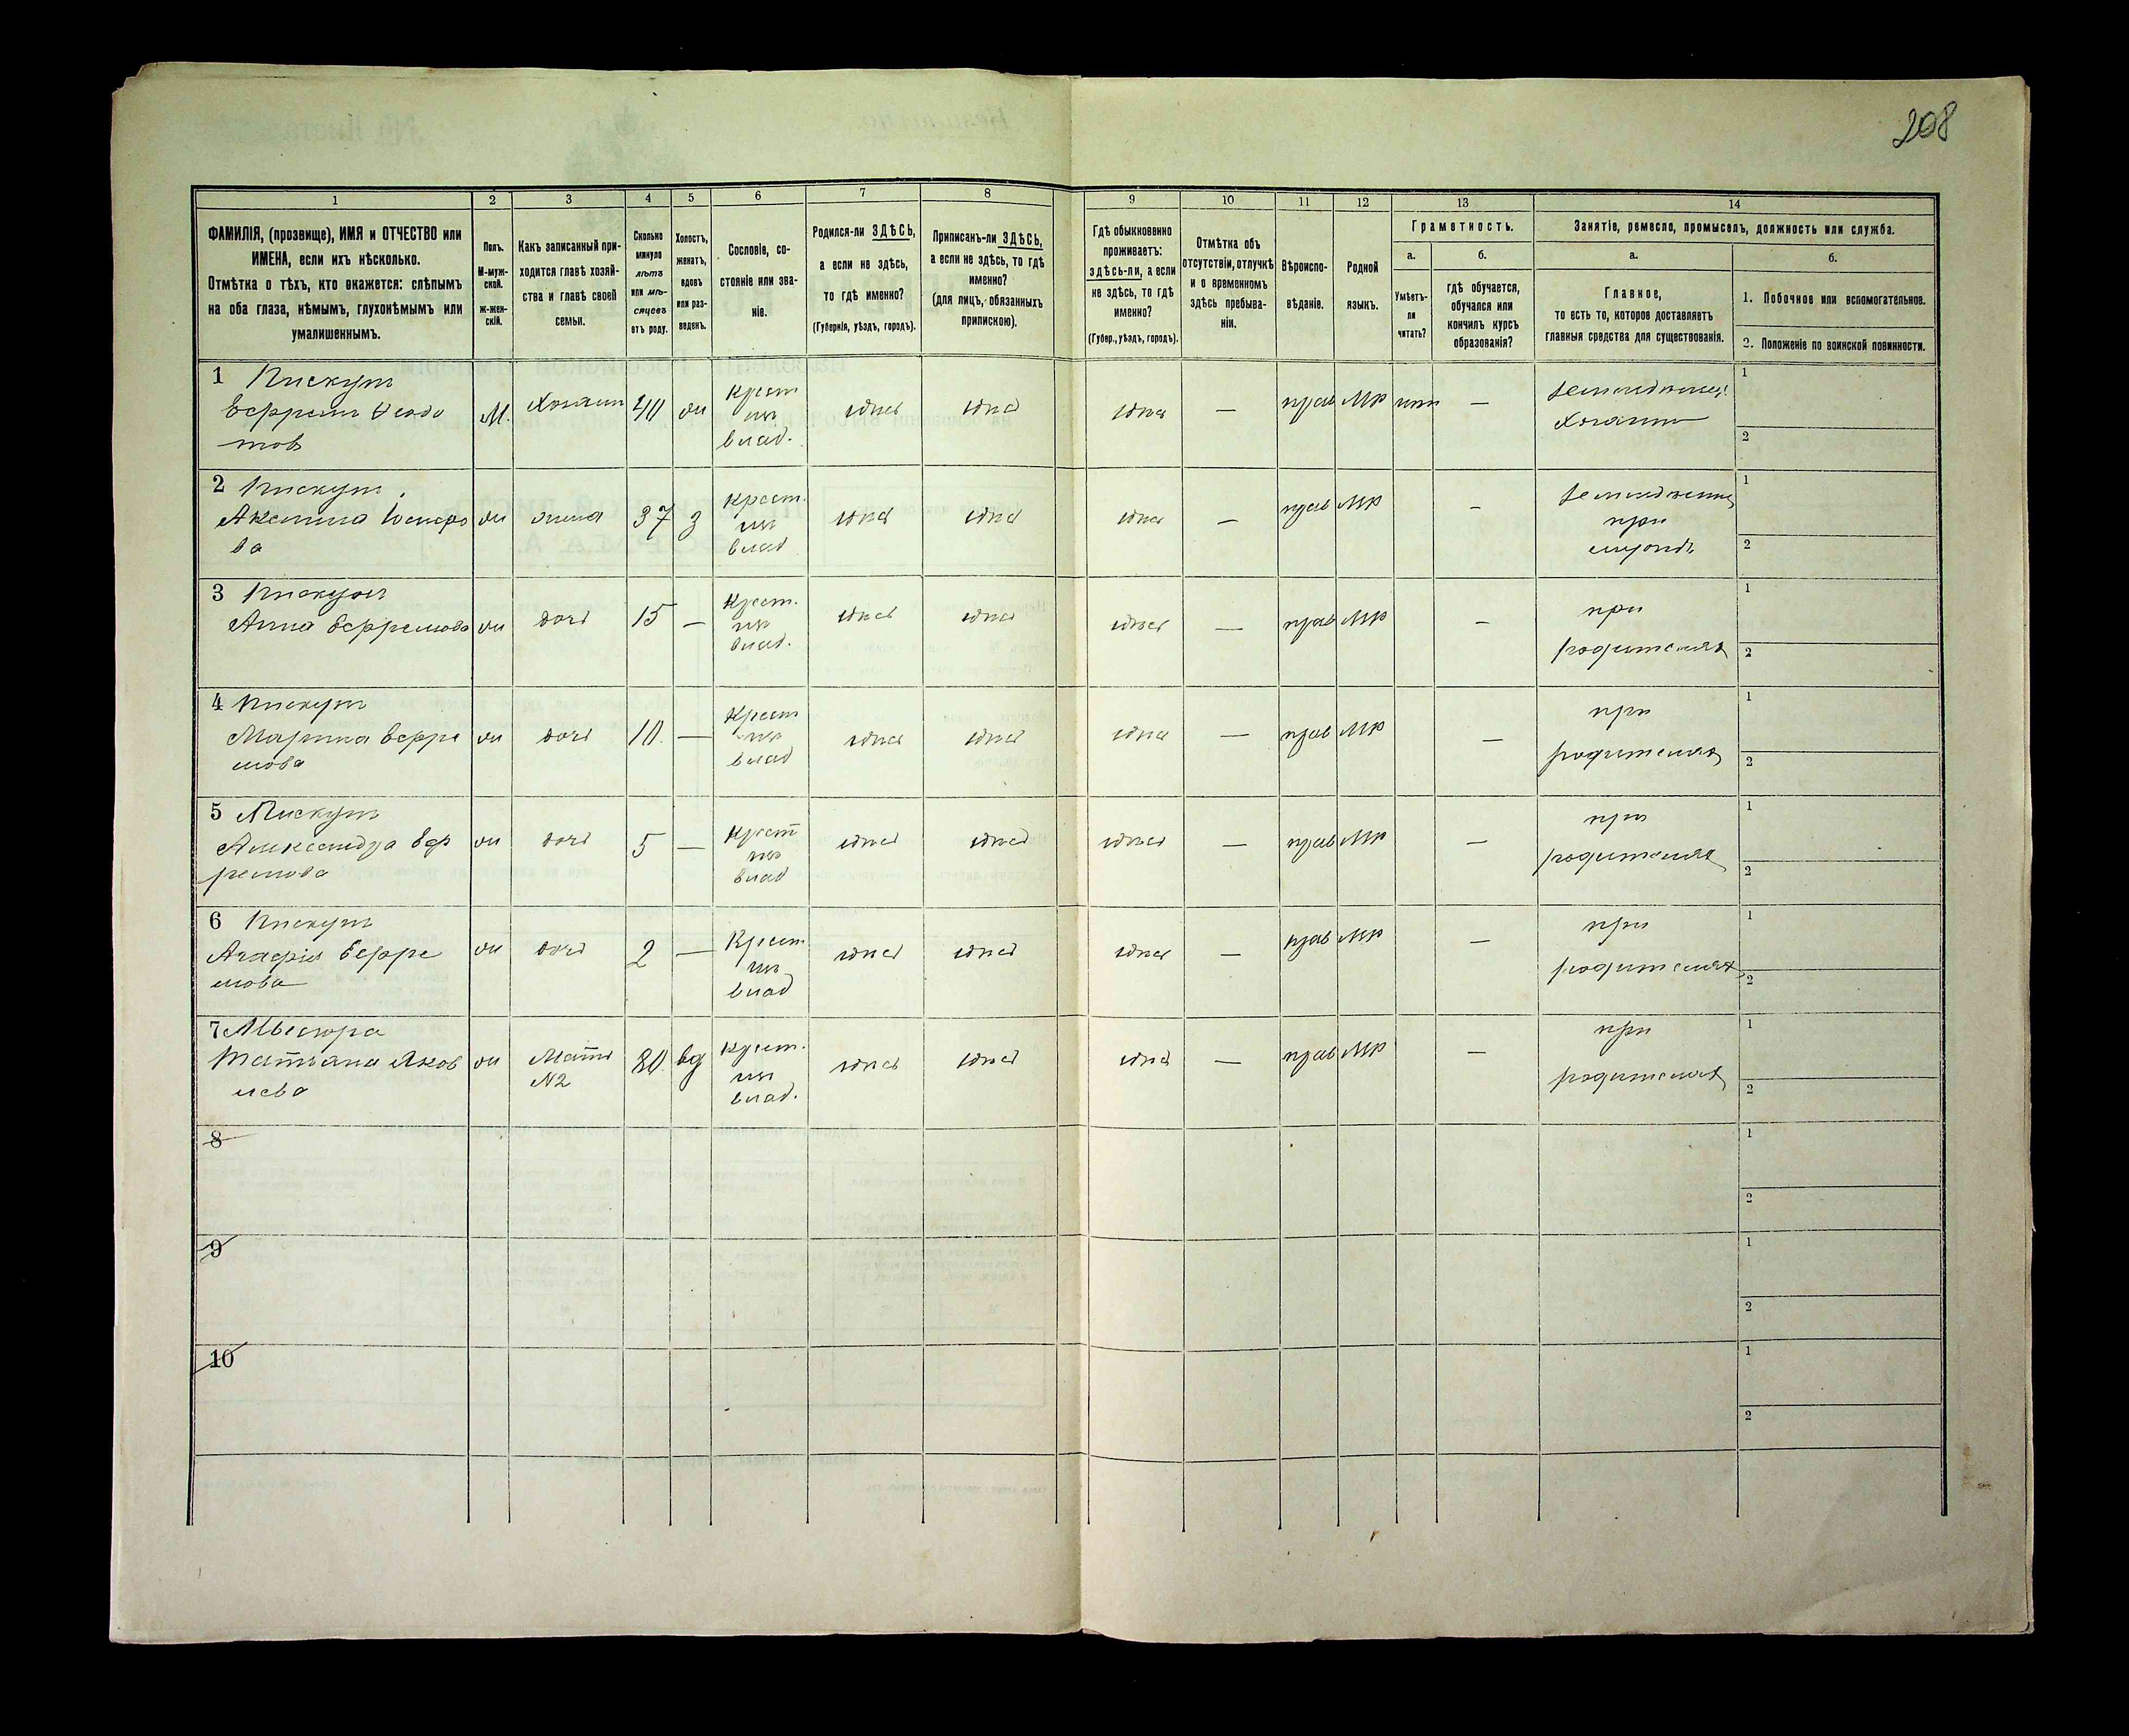 208
1 2 3 4 5 6 7 8 9 10 11 12 13 14
ФАМИЛІЯ, (прозвище), ИМЯ и ОТЧЕСТВО или
ИМЕНА, если ихъ нѣсколько.
Отмѣтка о тѣхъ, кто окажется: слѣпымъ
на оба глаза, нѣмымъ, глухонѣмымъ или
умалишеннымъ.
Полъ.
М-муж-
ской.
ж-жен-
скій.
Какъ записанный при-
ходится главѣ хозяй-
ства и главѣ своей
семьи.
Сколько
минуло
лѣтъ
или мѣ-
сяцевъ
отъ роду.
Холостъ,
женатъ,
вдовъ
или раз-
веденъ.
Сословіе, со-
стояніе или зва-
ніе.
Родился-ли ЗДѢСЬ,
а если не здѣсь,
то гдѣ именно?
(Губернія, уѣздъ, городъ).
Приписанъ-ли ЗДѢСЬ,
а если не здѣсь, то гдѣ
именно?
(для лицъ, обязанныхъ
припискою).
Гдѣ обыкновенно
проживаетъ:
здѣсь-ли, а если
не здѣсь, то гдѣ
именно?
(Губер., уѣздъ, городъ).
Отмѣтка объ
отсутствіи, отлучкѣ
и о временномъ
здѣсь пребыва-
ніи.
Вѣроиспо-
вѣданіе.
Родной
языкъ.
Грамотность.
а.
Умѣетъ-
ли
читать?
б.
гдѣ обучается,
обучался или
кончилъ курсъ
образованія?
Занятіе, ремесло, промыселъ, должность или служба.
а.
Главное,
то есть то, которое доставляетъ
главныя средства для существованія.
б.
1. Побочное или вспомогательное.
2. Положеніе по воинской повинности.
1 Пискун
Ефрем Федо
тов
М. Хозяин 40 жи Крест из влад. здесь здесь здесь — прав МР нет — земледелец хозяин 1 2
2 Пискун
Аксения
ва
жи жена 37 з Крест. из влад здесь здесь здесь — прав МР — при 1 2
3 Пискун
Анна Ефремова
жи дочь 15 — Крест. из влад. здесь здесь здесь — прав МР — при родителях 1 2
4 Пискун
Марина Ефре
мова
жи дочь 10. — Крест из влад здесь здесь здесь — прав МР — при родителях 1 2
5 Пискун
Александра Еф
ремова
жи дочь 5 — Крест из влад здесь здесь здесь — прав МР — при родителях 1 2
6 Пискун
Агафія Ефре
мова
жи дочь 2 — Крест из влад здесь здесь здесь — прав МР — при родителях 1 2
7
Татьяна Яков
лева
жи Мать №2 80. вд Крест. из влад. здесь здесь здесь — прав МР — при родителях 1 2
8 1 2
9 1 2
10 1 2